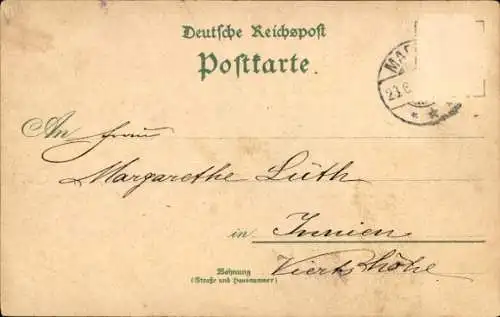 Deutsche Reichspost
Postkarte
MA
23.6
An Frau
Margarethe Lüth
in Innien
Wohnung
(Straße und Hausnummer)
Viertshöhe